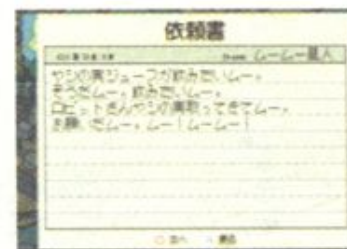 依頼書
From ムームー星人
ヤシの実ジュースが飲みたいムー。
そうだムー。飲みたいムー。
ロビットさんヤシの実取ってきてムー。
お願いだムー。ムー！ムームー！
次へ 戻る